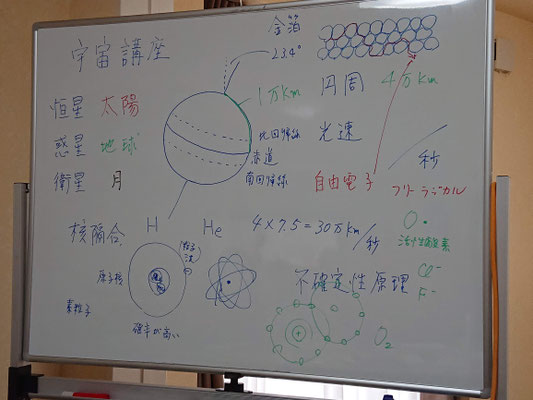 宇宙講座
金箔
23.4°
恒星 太陽
1万Km
円周 4万Km
惑星 地球
北回帰線
光速
赤道
/秒
衛星 月
南回帰線
自由電子
フリーラジカル
核融合
H
He
4×7.5=30万Km/秒
O・
活性酸素
原子核
不確定性原理
Cl⁻
F⁻
素粒子
確率が高い
+
O₂